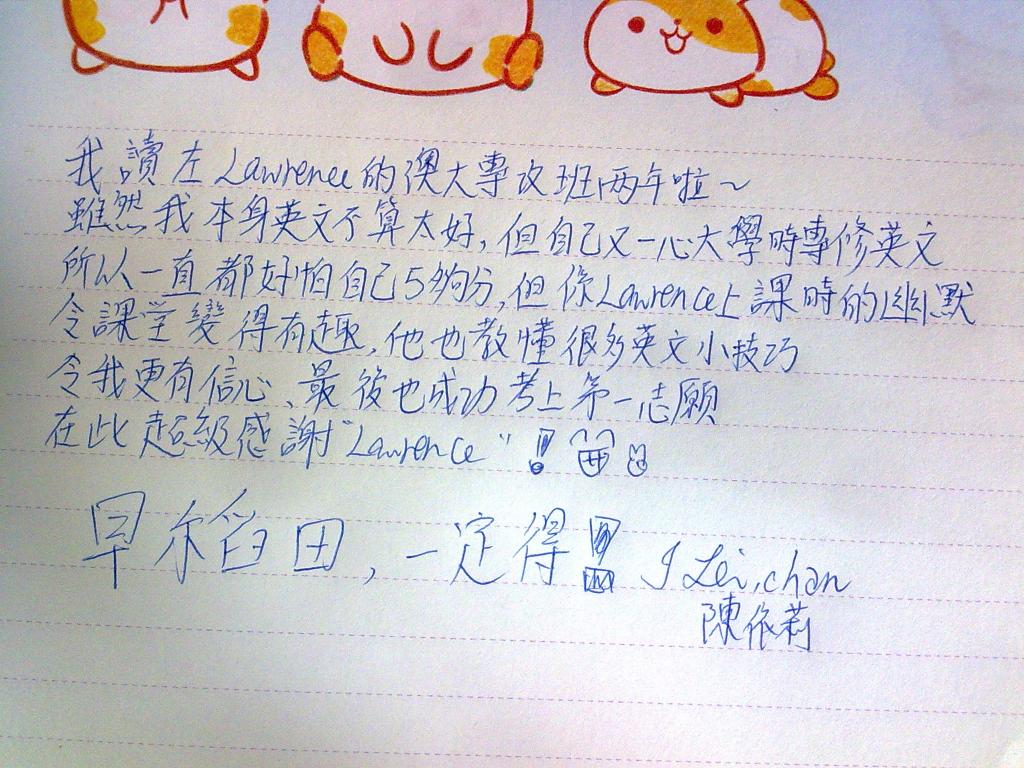 我讀左Lawrence的澳大專攻班两年啦~
雖然我本身英文不算太好,但自己又一心大學時專修英文
所以一直都好怕自己5夠分,但係Lawrence上課時的幽默
令課堂變得有趣,他也教懂很多英文小技巧
令我更有信心、最後也成功考上第一志願
在此超級感謝"Lawrence"!
早稻田,一定得! I Lei, chan
陳依莉